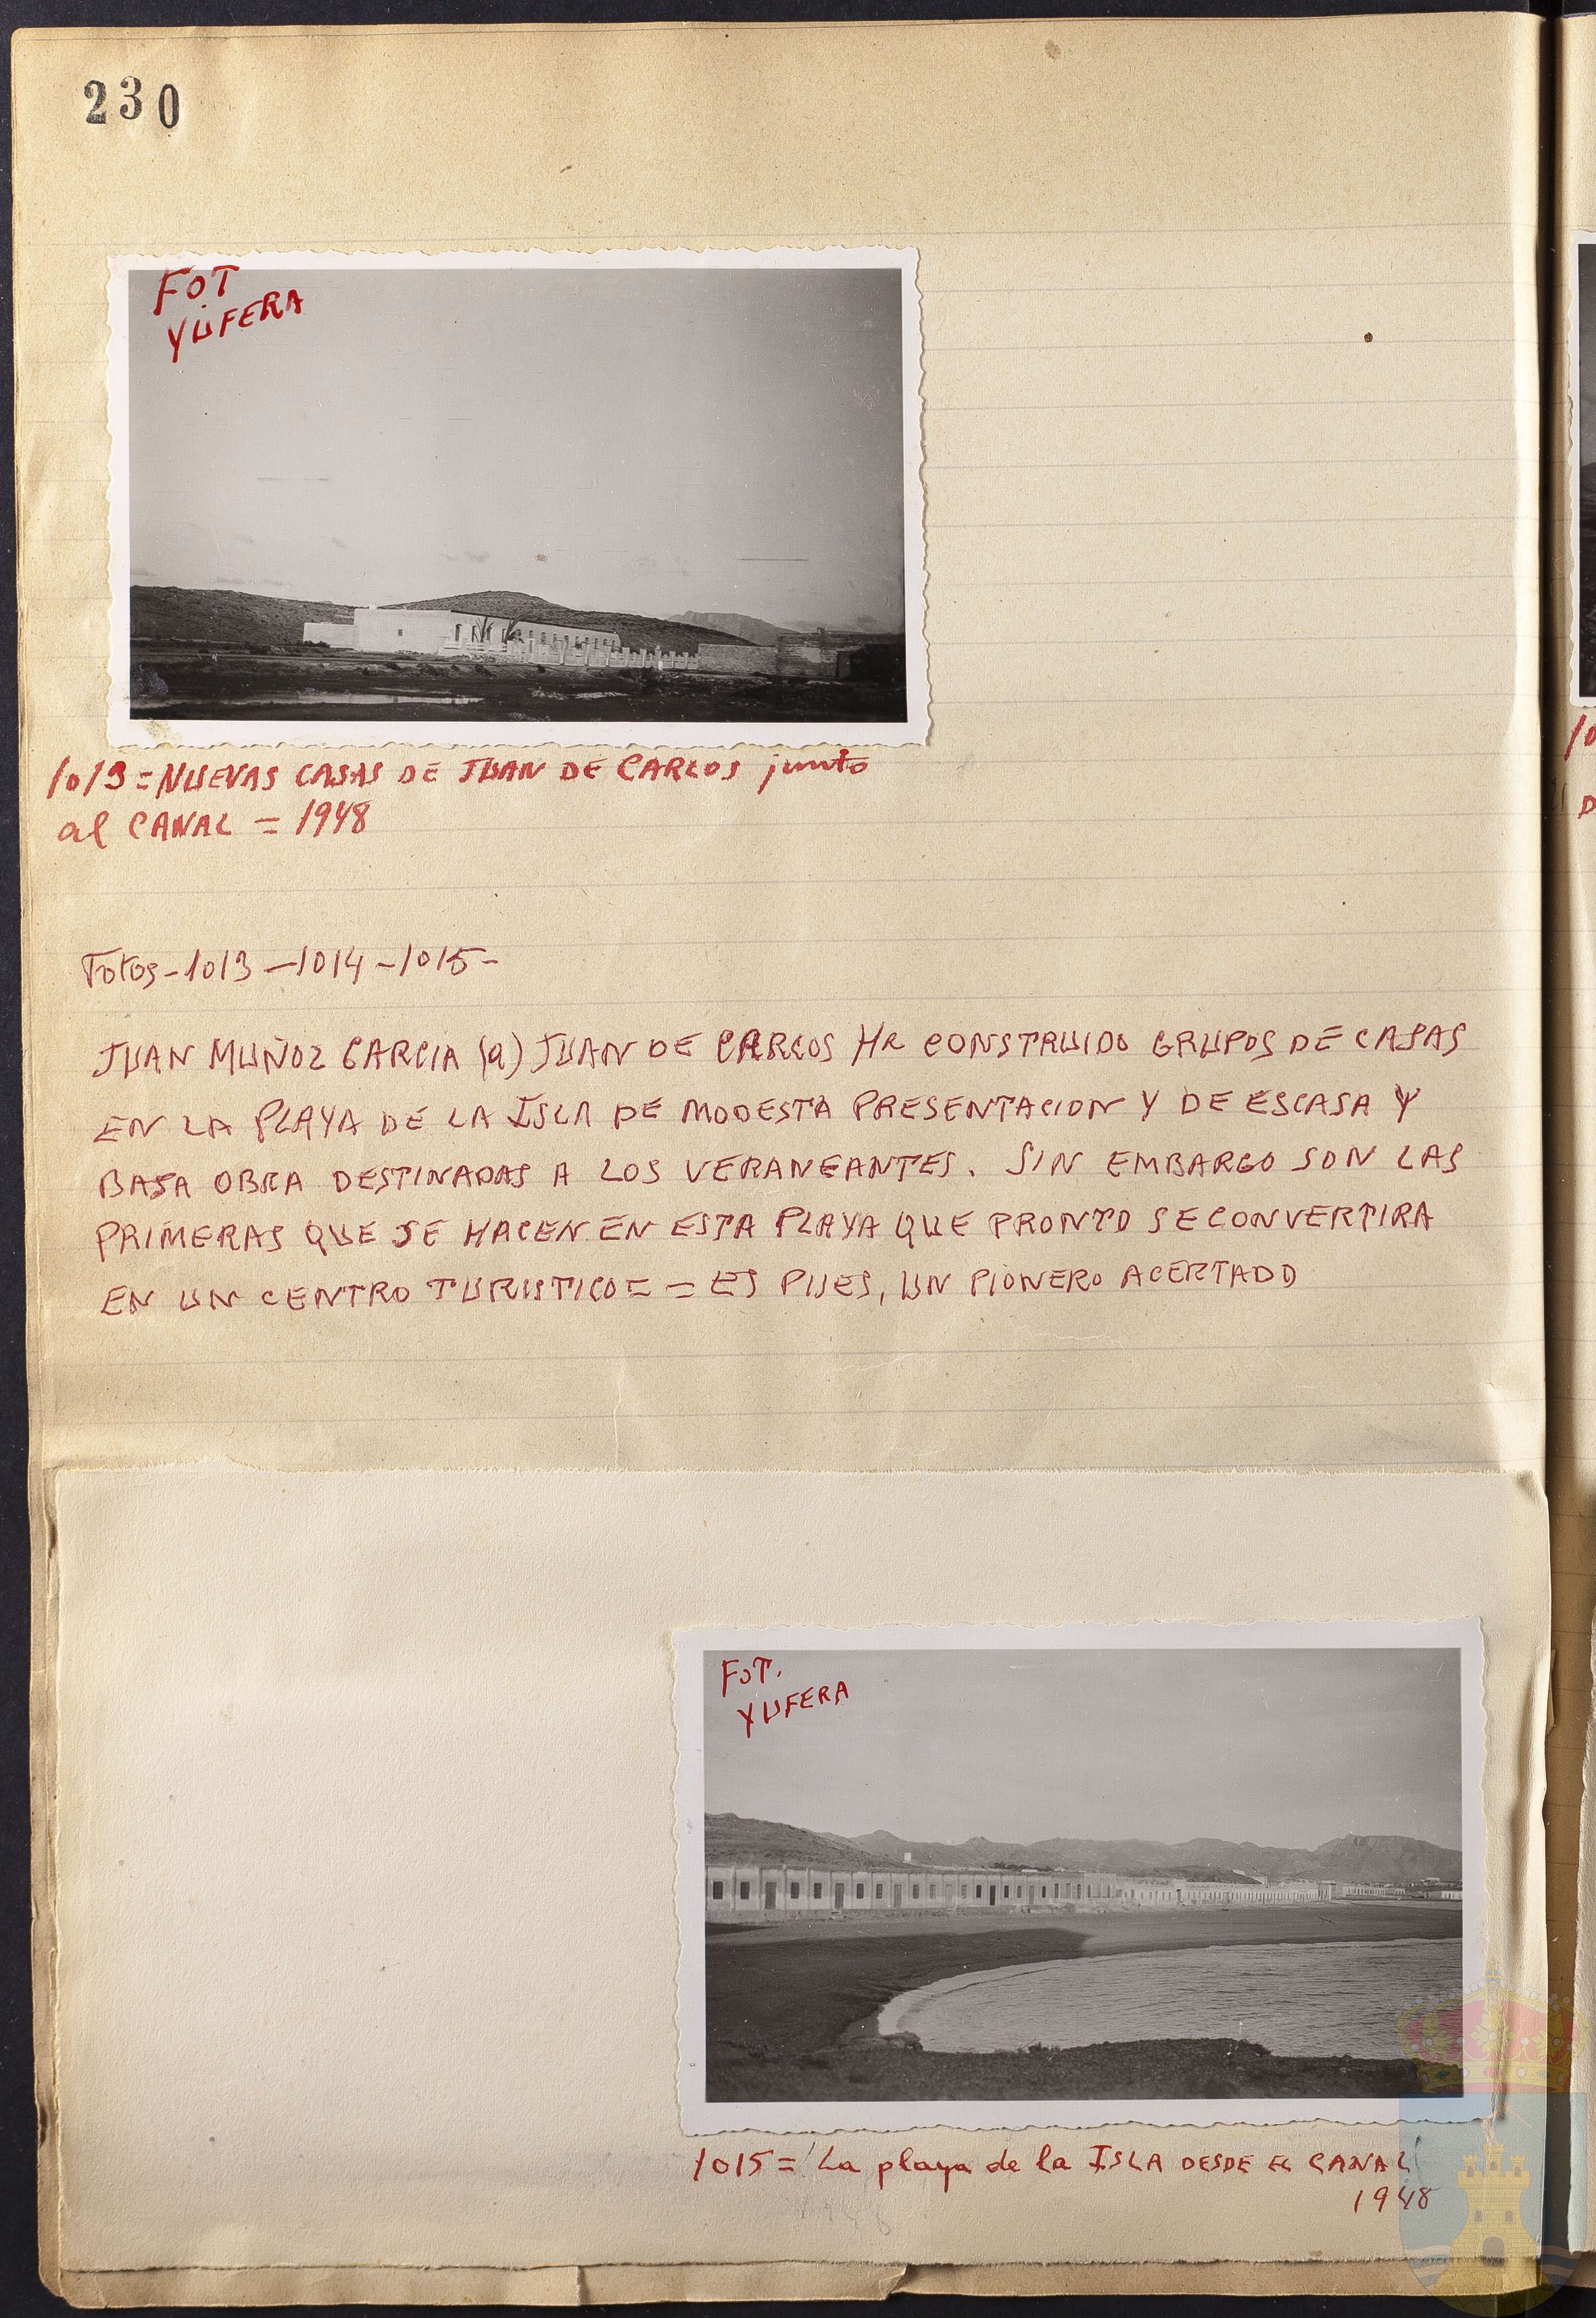 230
FOT
YUFERA
1013=NUEVAS CASAS DE JUAN DE CARLOS junto
al CANAL = 1948
Fotos-1013-1014-1015-
JUAN MUÑOZ GARCIA (a) JUAN DE CARLOS HA CONSTRUIDO GRUPOS DE CASAS
EN LA PLAYA DE LA ISLA DE MODESTA PRESENTACION Y DE ESCASA Y
BAJA OBRA DESTINADAS A LOS VERANEANTES. SIN EMBARGO SON LAS
PRIMERAS QUE SE HACEN EN ESTA PLAYA QUE PRONTO SE CONVERTIRA
EN UN CENTRO TURISTICO= = ES PUES, UN PIONERO ACERTADO
FOT.
YUFERA
1015= La playa de la ISLA DESDE EL CANAL
1948